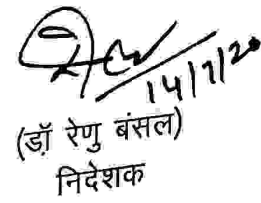 14/7/20
(डॉ रेणु बंसल)
निदेशक